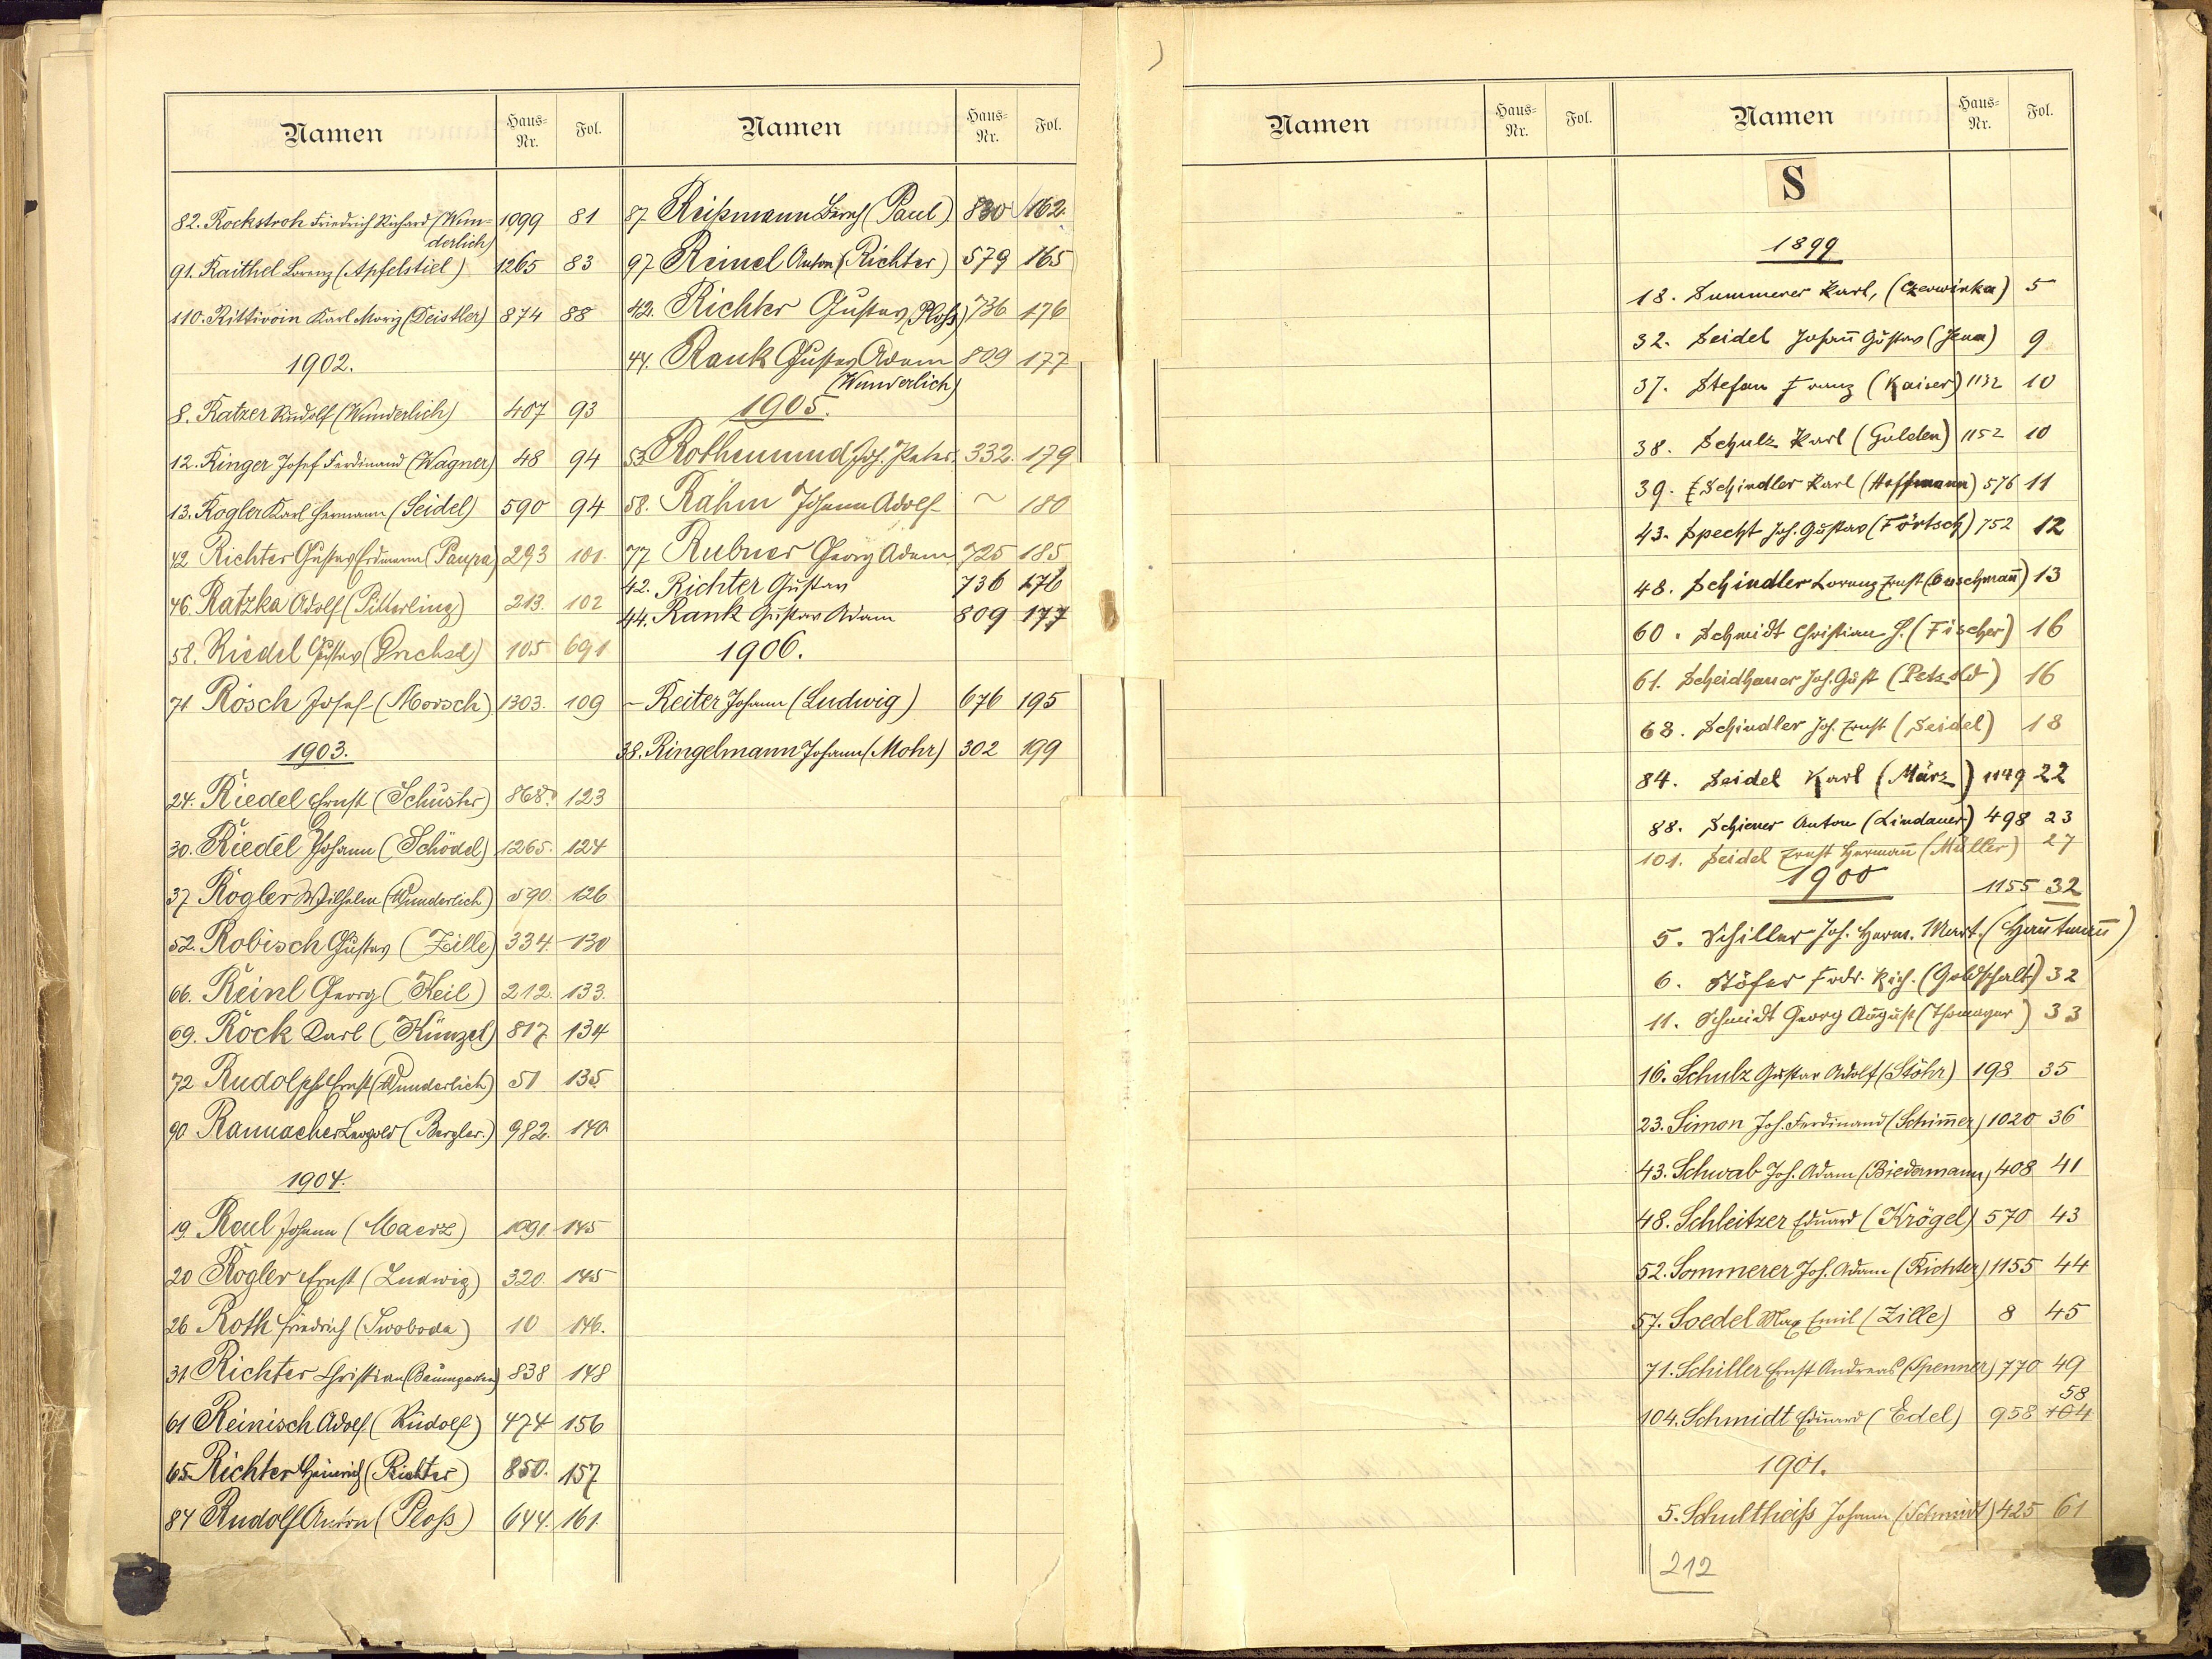 Namen Haus-Nr. Fol.
82. Rockstroh Friedrich Richard (Wun- 1099 81
derlich)
91. Raithel Lorenz (Apfelstiel) 1265 83
110. Rittivoin Karl Moriz (Deistler) 874 88
1902.
8. Ratzer Rudolf (Wunderlich) 407 93
12. Ringer Josef Ferdinand (Wagner) 48 94
13. Rogler Karl Hermann (Seidel) 590 94
42 Richter Gustav Erdmann (Paupa) 293 101.
46. Ratzka Adolf (Pitterling) 213. 102
58. Riedel Gustav (Drechsel) 105 691
71 Rösch Josef (Morsch) 1303. 109
1903.
24. Riedel Ernst (Schuster) 868. 123
30. Riedel Johann (Schödel) 1265. 124
37 Rogler Wilhelm (Wunderlich) 590. 126
52. Robisch Gustav (Zille) 334. 130
66. Reinl Georg (Keil) 212. 133.
69. Rock Karl (Künzel) 817. 134
72 Rudolph Ernst (Wunderlich) 51 135
90 Rannacher Leopold (Bergler.) 982. 140
1904.
19. Raul Johann (Maerz) 1091. 145
20 Rogler Ernst (Ludwig) 320. 145
26 Roth Friedrich (Swoboda) 10 146.
31 Richter Christian (Baumgarten) 838 148
61 Reinisch Adolf (Rudolf) 474 156
65. Richter Heinrich (Richter) 850. 157
84 Rudolf Anton (Ploß) 644. 161
Namen Haus-Nr. Fol.
87. Reißmann (Paul) 830 162.
97 Reinel Anton (Richter) 579 165
42. Richter Gustav (Ploß) 736 176
44. Rank Gustav Adam 809 177
(Wunderlich)
1905.
53. Rothemund Joh. Peter. 332. 179
58. Rahm Johann Adolf ~ 180
77 Rubner Georg Adam 725 185
42. Richter Gustav 736 176
44. Rank Gustav Adam 809 177
1906.
- Reiter Johann (Ludwig) 676 195
38. Ringelmann Johann (Mohr) 302 199
Namen Haus-Nr. Fol.
Namen Haus-Nr. Fol.
S
1899
18. Summerer Karl, (Czerwinka) 5
32. Seidel Johañ Gustav (Jena) 9
37. Stefan Franz (Kaiser) 1132 10
38. Schulz Karl (Gulden) 1152 10
39. Schindler Karl (Hoffmann) 576 11
43. Specht Joh. Gustav (Förtsch) 752 12
48. Schindler Lorenz Ernst 13
60. Schmidt Christian H. (Fischer) 16
61. Scheidhauer Joh. Gust (Petzold) 16
68. Schindler Joh. Ernst (Seidel) 18
84. Seidel Karl (März) 1149 22
88. Schiener Anton (Lindauer) 498 23
101. Seidel Ernst Hermañ (Müller) 27
1900
1155 32
5. Schiller Joh. Herm. Mart. (Hautmañ)
6. Stöfer Frdr. Rich. 32
11. Schmidt Georg August (Thomayer) 33
16. Schulz Gustav Adolf (Stöhr) 198 35
23. Simon Joh. Ferdinand (Schim̄er) 1020 36
43. Schwab Joh. Adam (Biedermann) 408 41
48. Schleitzer Eduard (Krögel) 570 43
52. Sommerer Joh. Adam (Richter) 1155 44
57. Soedel Max Emil (Zille) 8 45
71. Schiller Ernst Andreas (Spenner) 770 49
58
104. Schmidt Eduard (Edel) 958 104
1901.
5. Schultheiß Johann (Schmidt) 425 61
212